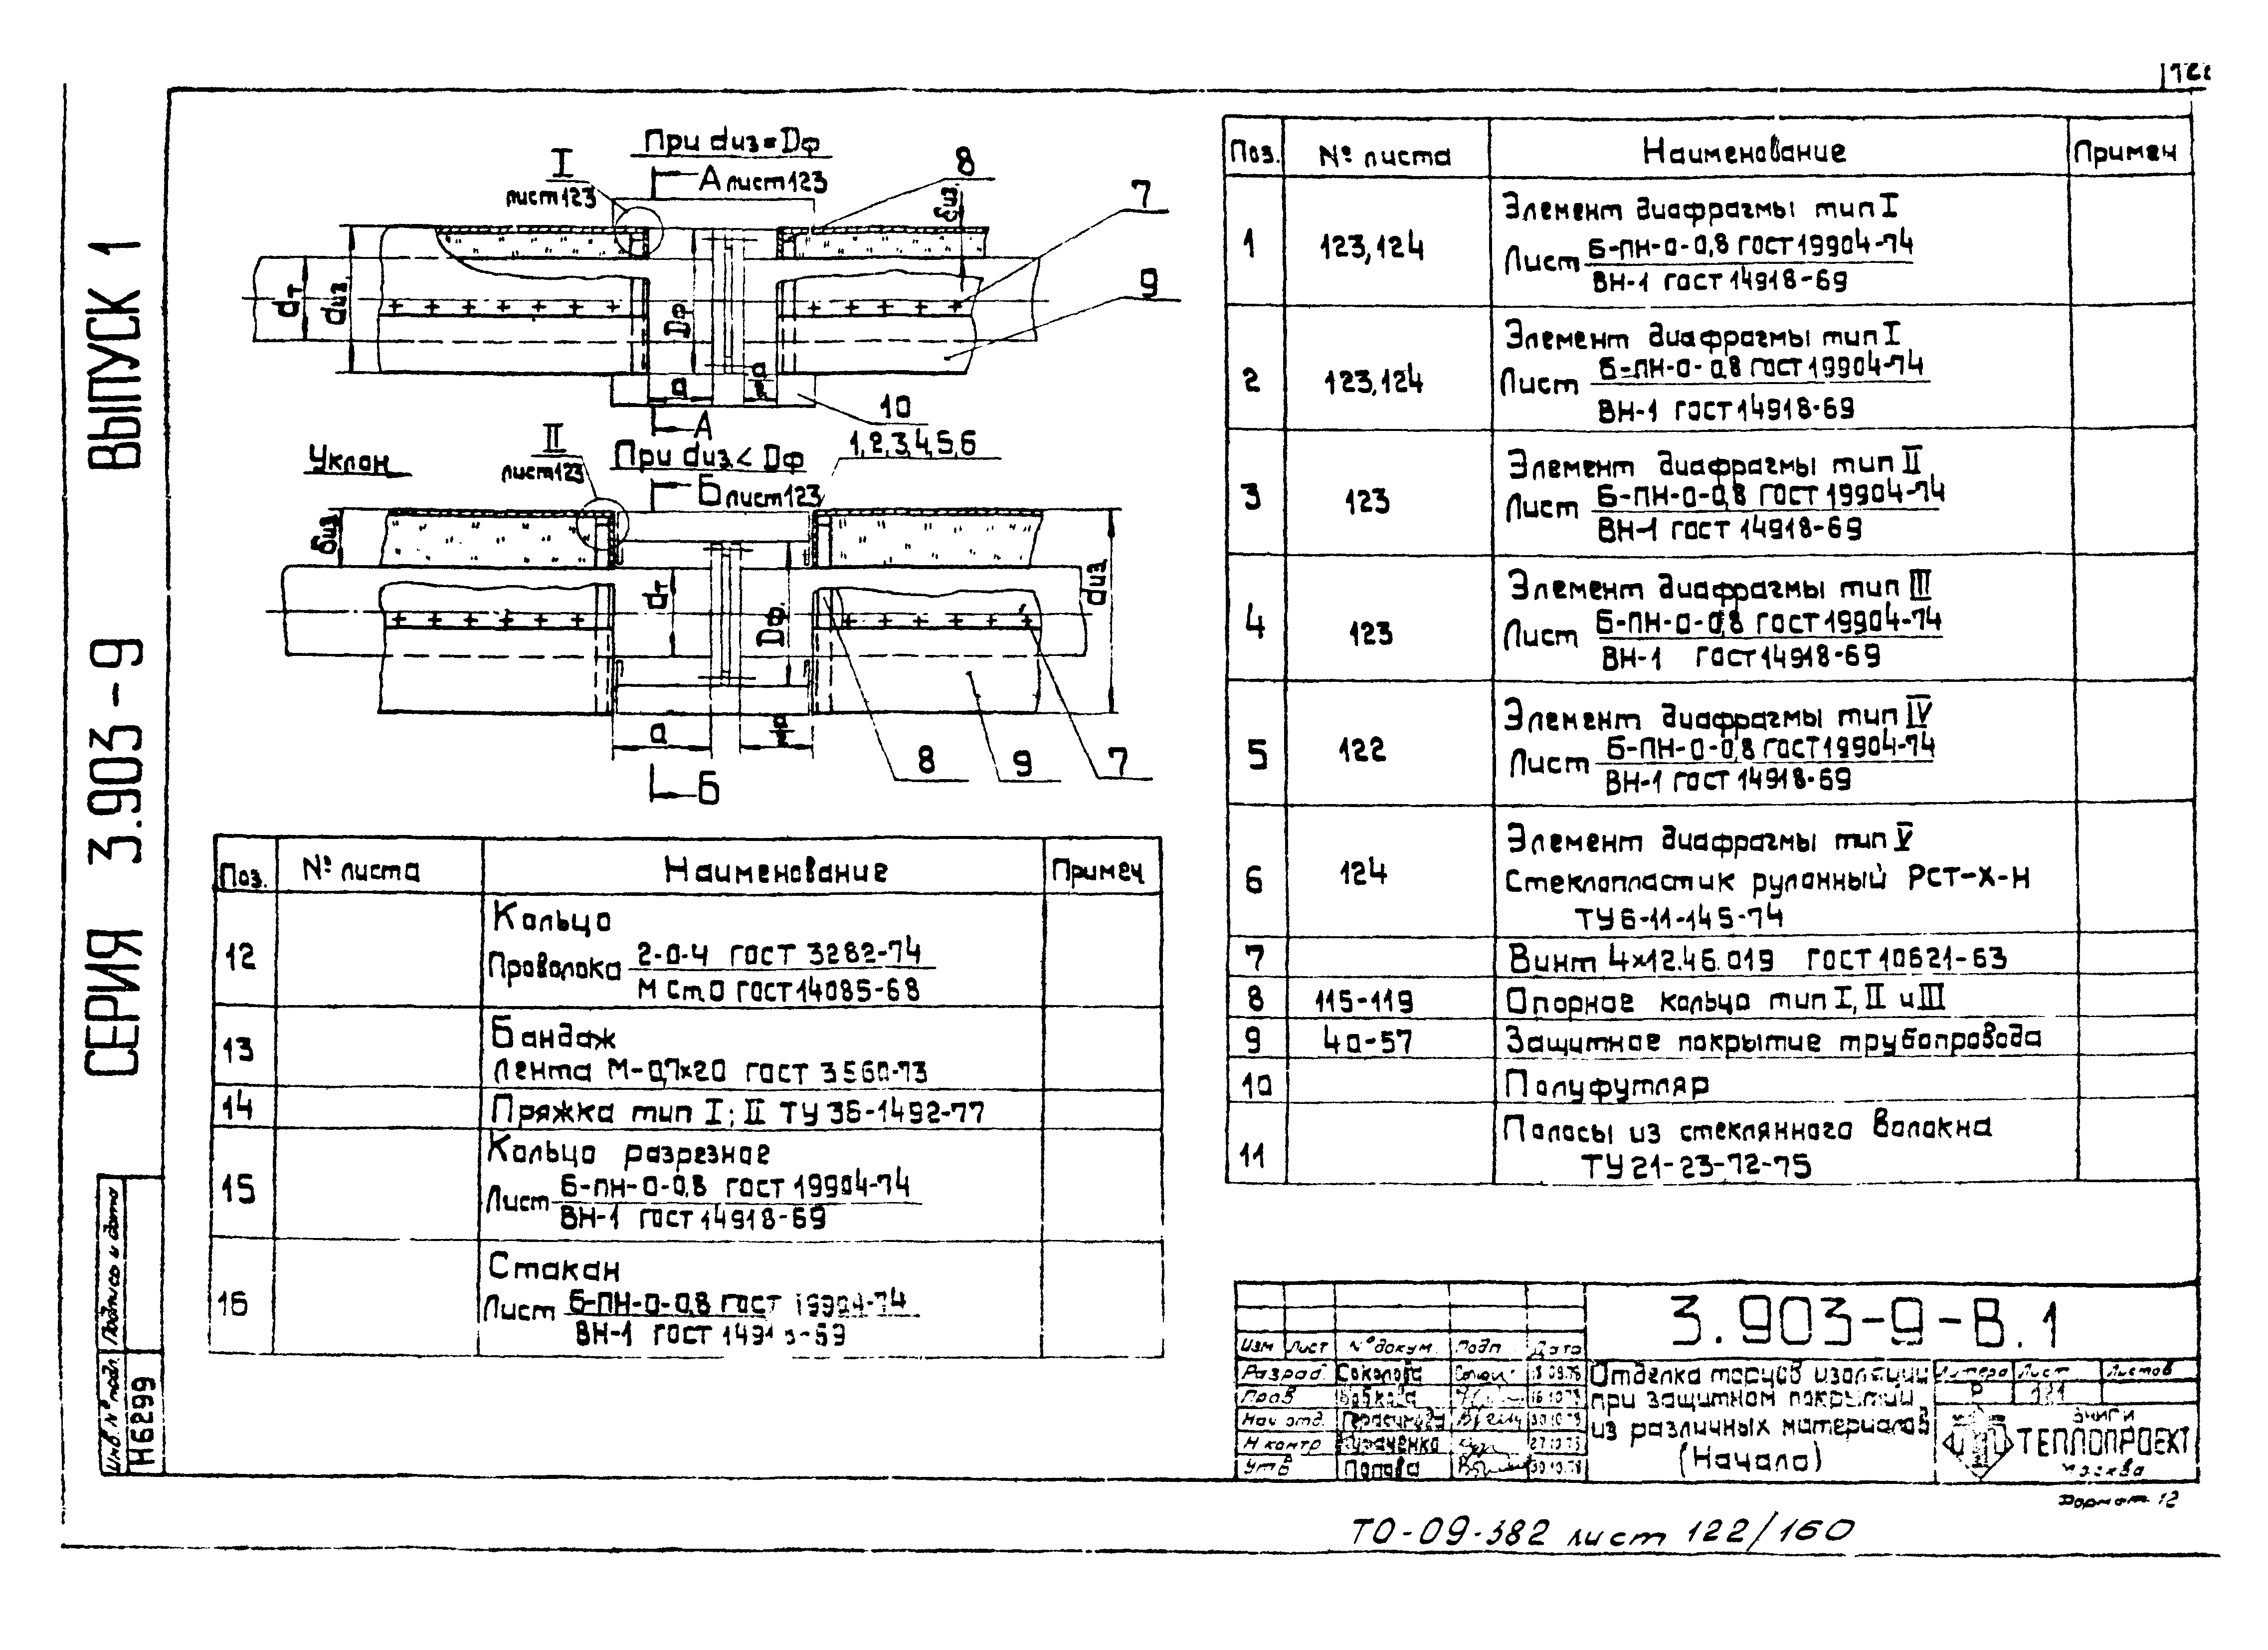 СЕРИЯ 3.903-9 ВЫПУСК 1
При dиз=Dф
I
лист 123
А лист 123
8
7
9
δиз
dт
dиз
Dф
а
10
1,2,3,4,5,6
А
Уклон
II
лист 123
При dиз < Dф
Б лист 123
δиз
dт
Dф
dиз
а
8
9
7
Б
Поз. № листа Наименование Примеч
1 123,124 Элемент диафрагмы тип I
Лист Б-ПН-О-0,8 ГОСТ 19904-74
ВН-1 ГОСТ 14918-69
2 123,124 Элемент диафрагмы тип I
Лист Б-ПН-О-0,8 ГОСТ 19904-74
ВН-1 ГОСТ 14918-69
3 123 Элемент диафрагмы тип II
Лист Б-ПН-О-0,8 ГОСТ 19904-74
ВН-1 ГОСТ 14918-69
4 123 Элемент диафрагмы тип III
Лист Б-ПН-О-0,8 ГОСТ 19904-74
ВН-1 ГОСТ 14918-69
5 122 Элемент диафрагмы тип IV
Лист Б-ПН-О-0,8 ГОСТ 19904-74
ВН-1 ГОСТ 14918-69
6 124 Элемент диафрагмы тип V
Стеклопластик рулонный РСТ-Х-Н
ТУ 6-11-145-74
7 Винт 4×12.46.019 ГОСТ 10621-63
8 115-119 Опорное кольцо тип I, II и III
9 40-57 Защитное покрытие трубопровода
10 Полуфутляр
11 Полосы из стеклянного волокна
ТУ 21-23-72-75
Поз. № листа Наименование Примеч
12 Кольцо
Проволока 2-О-Ч ГОСТ 3282-74
М Ст0 ГОСТ 14085-68
13 Бандаж
Лента М-0,7×20 ГОСТ 3560-73
14 Пряжка тип I; II ТУ 36-1492-77
15 Кольцо разрезное
Лист Б-ПН-О-0,8 ГОСТ 19904-74
ВН-1 ГОСТ 14918-69
16 Стакан
Лист Б-ПН-О-0,8 ГОСТ 19904-74
ВН-1 ГОСТ 14918-69
Инв. № подл. Подпись и дата
Н6299
3.903-9-В.1
Изм Лист № докум. Подп Дата
Разраб. Соколова
Пров
Нач отд.
Н контр
Утв Попова 30.10.78
Отделка торцов изоляции
при защитном покрытии
из различных материалов
(Начало)
Литера Лист Листов
Р 121
ВНИПИ
ТЕПЛОПРОЕКТ
Москва
Формат 12
ТО-09-382 лист 122/160